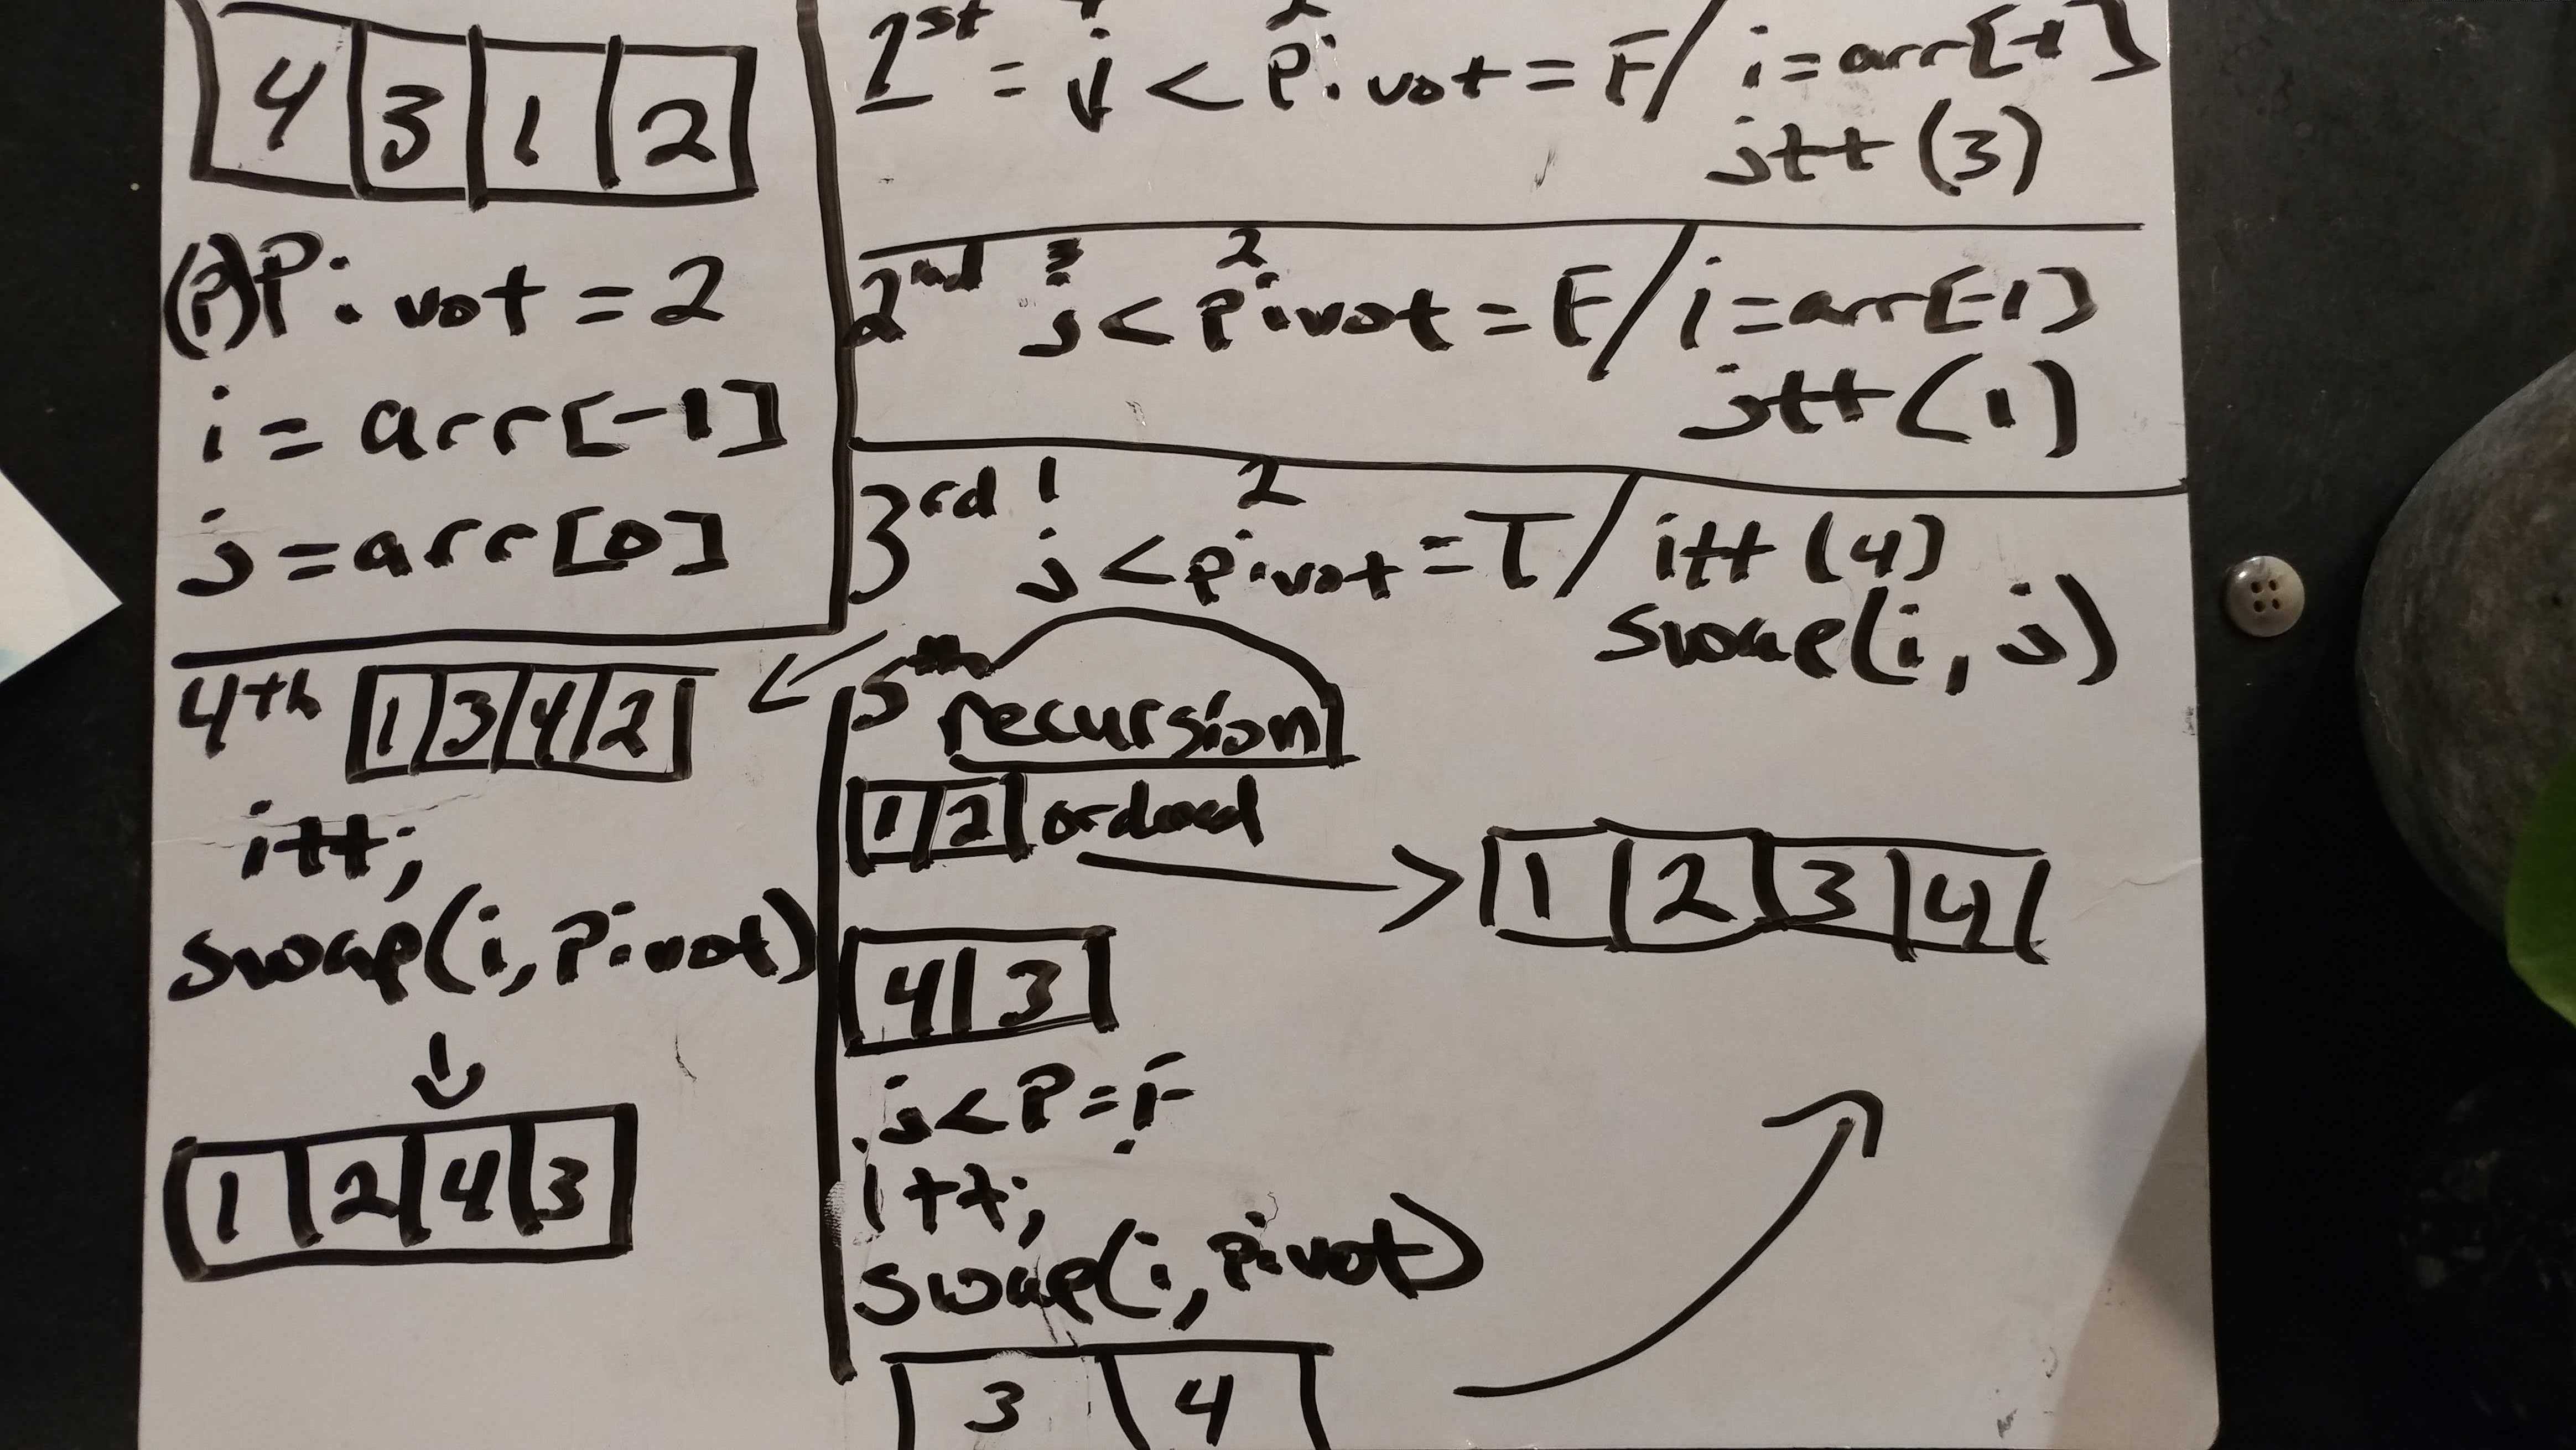 4 3 1 2
(P)Pivot = 2
i = arr[-1]
j = arr[0]
2
1st = j < Pivot = F / i = arr[-1]
j++ (3)
3 2
2nd j < Pivot = F / i = arr[-1]
j++ (1)
1 2
3rd j < pivot = T / i++ (4)
swap(i, j)
4th 1 3 4 2
i++;
swap(i, Pivot)
1 2 4 3
5th
recursion
1 2 ordered
1 2 3 4
4 3
j < P = F
i++;
swap(i, pivot)
3 4